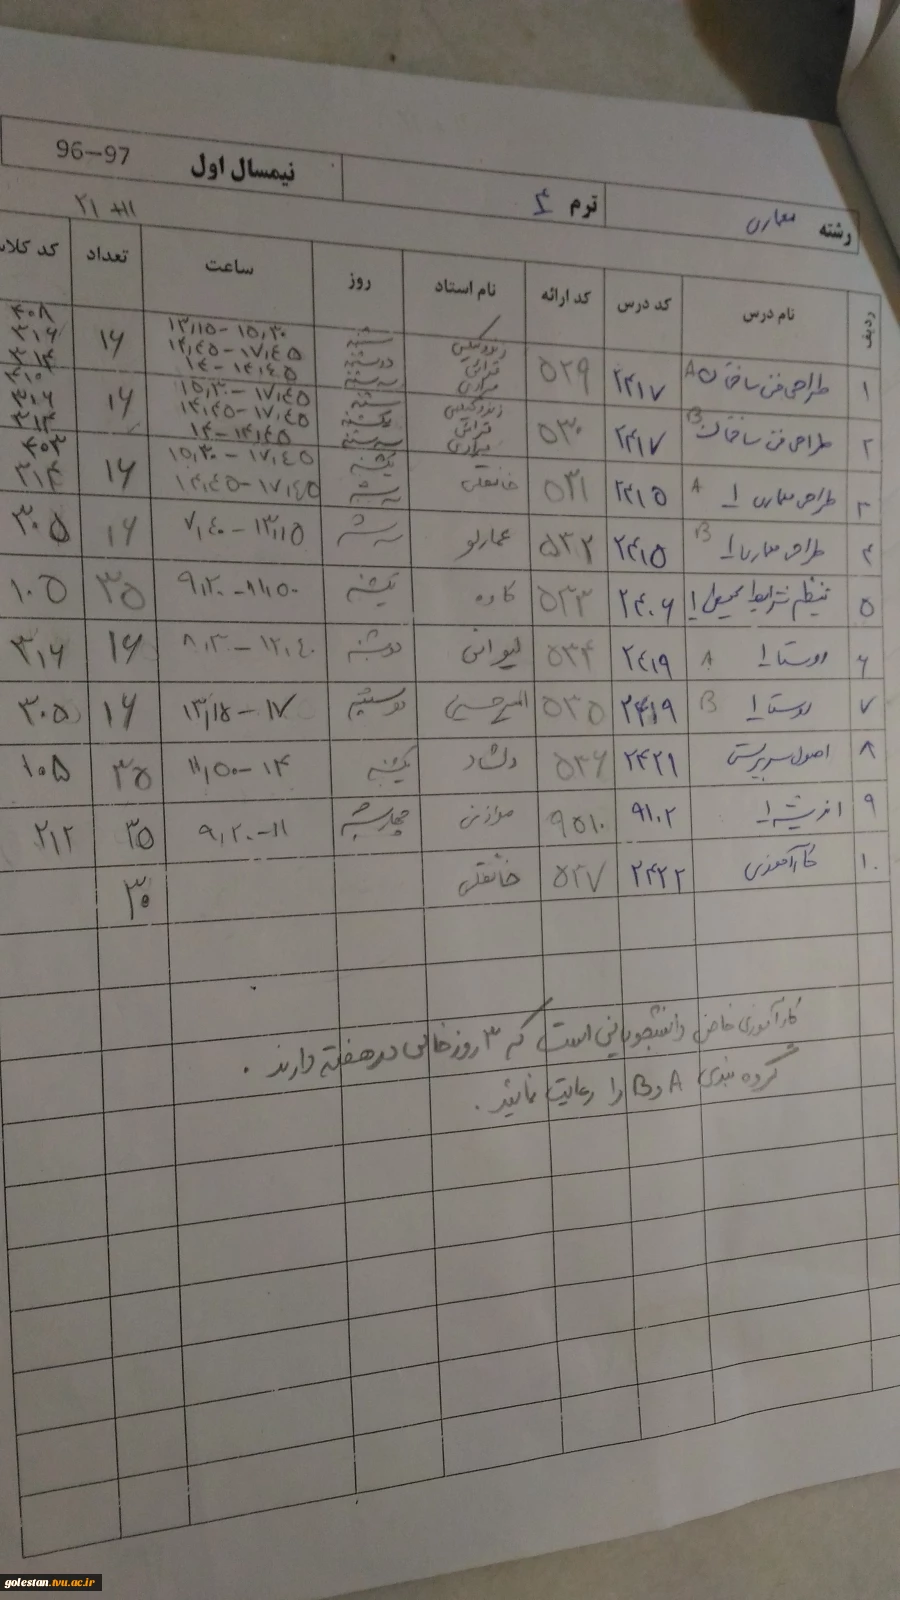 نیمسال اول 96-97
ترم ۴
رشته معماری
۱۱+ ۲۱
ردیف نام درس کد درس کد ارائه نام استاد روز ساعت تعداد کد کلاس
۱ طراحی فنی ساختمان A ۲۴۱۷ ۵۲۹ ۱۶
۱۳,۱۵ - ۱۵,۳۰
۱۴,۴۵ - ۱۷,۴۵
۱۴ - ۱۴,۴۵
۲ طراحی فنی ساختمان B ۲۴۱۷ ۵۳۰ ۱۶
۱۵,۳۰ - ۱۷,۴۵
۱۴,۴۵ - ۱۷,۴۵
۱۴ - ۱۴,۴۵
۳ طراحی معماری ۱ A ۲۴۱۵ ۵۳۱ خانقلی یکشنبه ۱۵,۳۰ - ۱۷,۴۵ ۱۶
۱۴,۴۵ - ۱۷,۴۵ ۳۱۴
۴ طراحی معماری ۱ B ۲۴۱۵ ۵۳۲ عمارلو سه شنبه ۷,۴۰ - ۱۳,۱۵ ۱۶ ۳۰۵
۵ تنظیم شرایط محیطی ۱ ۲۴۰۶ ۵۳۳ کاوه یکشنبه ۹,۲۰ - ۱۱,۵۰ ۳۵ ۱۰۵
۶ روستا ۱ A ۲۴۱۹ ۵۳۴ لیوانی دوشنبه ۸,۳۰ - ۱۲,۴۰ ۱۶ ۳۱۶
۷ روستا ۱ B ۲۴۱۹ ۵۳۵ دوشنبه ۱۳,۱۵ - ۱۷ ۱۶ ۳۰۵
۸ اصول سرپرستی ۲۴۲۱ ۵۳۶ دلشاد یکشنبه ۱۱,۵۰ - ۱۴ ۳۵ ۱۰۵
۹ اندیشه ۱ ۹۱۰۲ ۹۵۱۰ موازنی چهارشنبه ۹,۲۰ - ۱۱ ۳۵ ۲۱۲
۱۰ کارآموزی ۲۴۲۲ ۵۳۷ خانقلی ۳۰
کارآموزی خاص دانشجویانی است که ۳ روز خالی در هفته دارند .
گروه بندی A و B را رعایت نمائید .
golestan.tvu.ac.ir